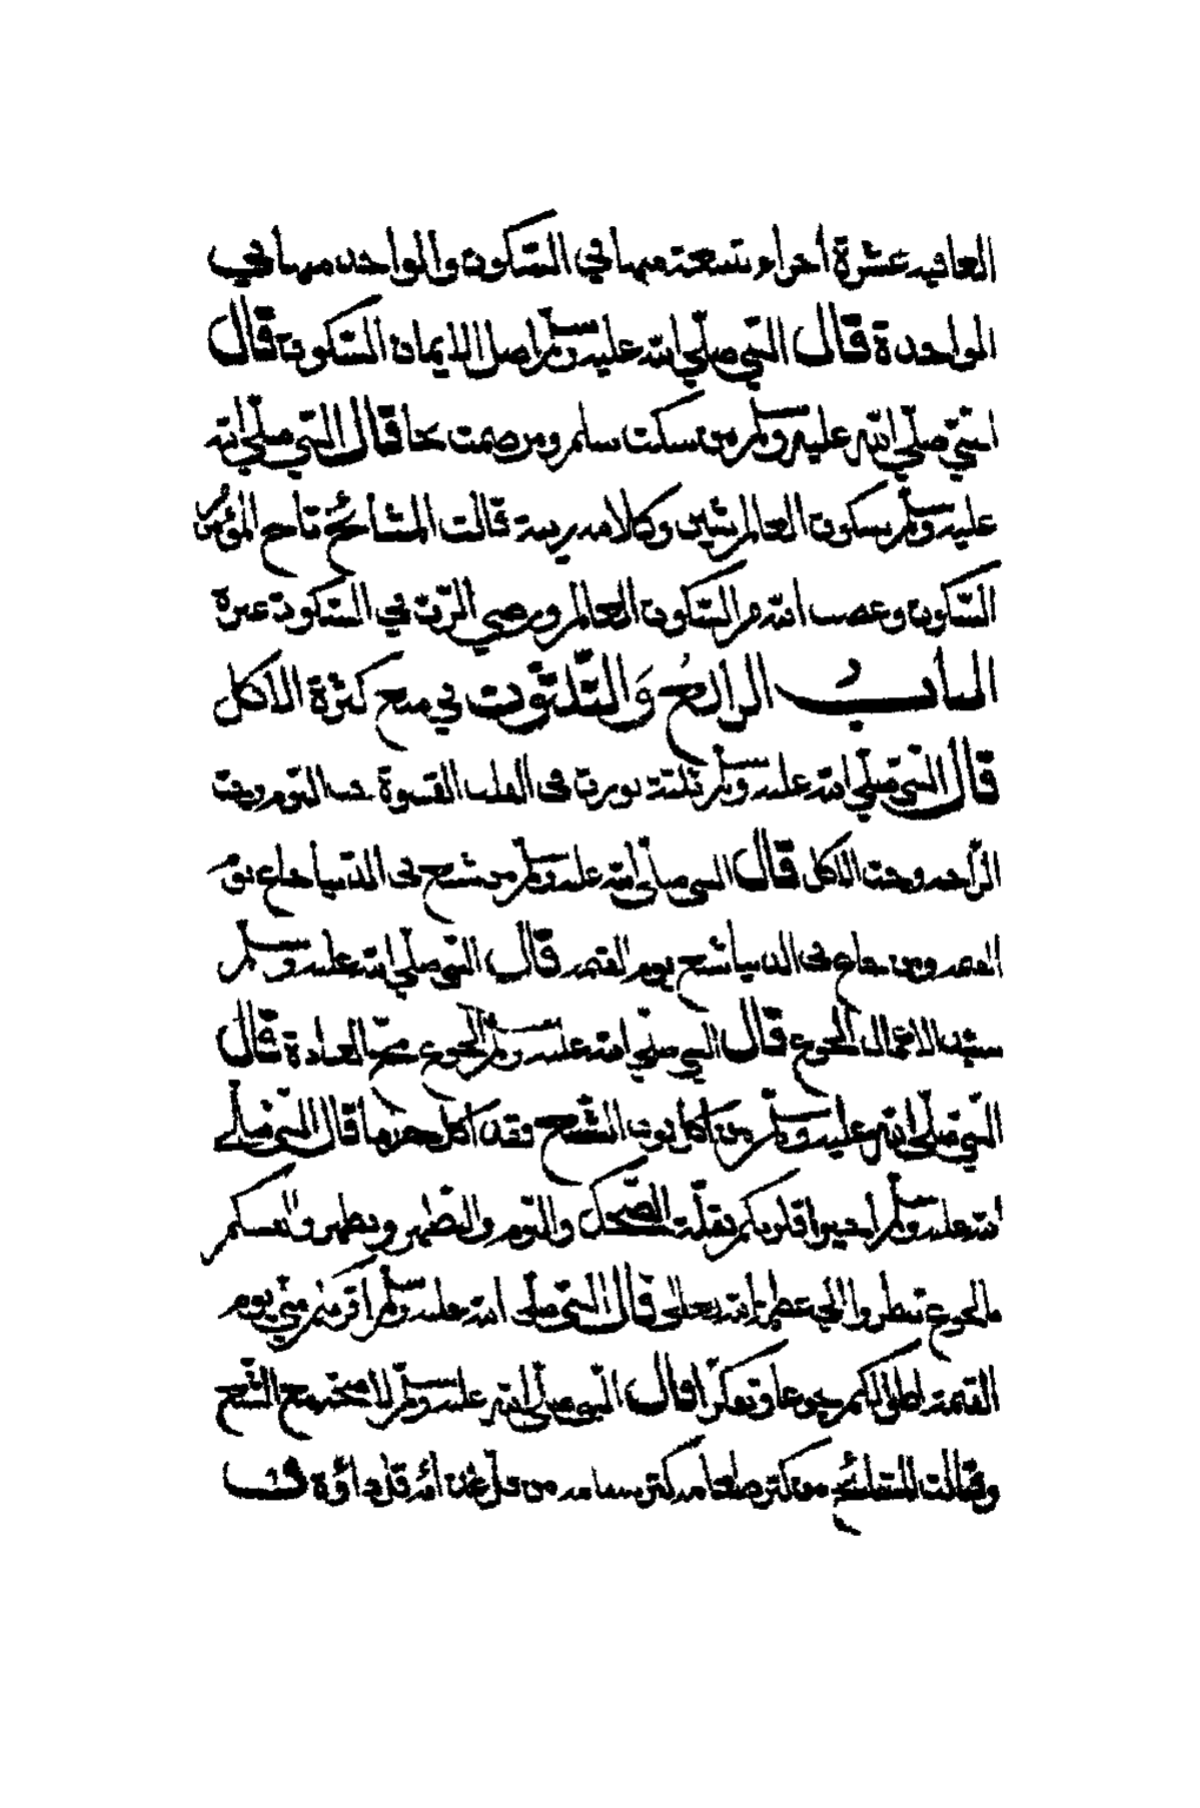 العافيه عشرة اجزاء تسعة منها في السّكون والواحد منها في
الواحدة قال النّبي صلّي الله عليه وسلّم اصل الايمان السّكون قال
النّبيّ صلّي الله عليه وسلّم من سكت سلم ومن صمت نجا قال النّبي صلّي الله
عليه وسلّم سكون العالم شين وكلامه زينة قالت المشائخ تاج المؤمن
السّكون وغضب الله من السّكون العالم ورضي الرّب في السّكون غيره
الباب الرابع وَالثّلثون في منع كثرة الاكل
قال النّبي صلّي الله عليه وسلّم ثلثة يورث في القلب القسوة حب النّوم وحب
الرّاحه وحب الاكل قال النبي صلّي الله عليه وسلّم من شبع في الدّنيا جاع يوم
القيمه ومن جاع في الدنيا شبع يوم القيمه قال النّبي صلّي الله عليه وسلّم
سيّد الاعمال الجوع قال النّبي صلّي الله عليه وسلّم الجوع مخّ العبادة قال
النّبيّ صلّي الله عليه وسلّم من اكل فوق الشّبع فقد اكل حراما قال النّبي صلّي
الله عليه وسلّم احيوا قلوبكم بقلّت الضّحك والنّوم والطّهر
بالجوع تنظروا الي عظمة الله تعالي قال النّبي صلّي الله عليه وسلّم اقربكم منّي يوم
القيمة اطولكم جوعا وتفكّرا قال النّبي صلّي الله عليه وسلّم لا صحّة مع الشّبع
وقالت المشائخ من كثر طعامه كثر سقامه من قلّ غذائه قل داؤه